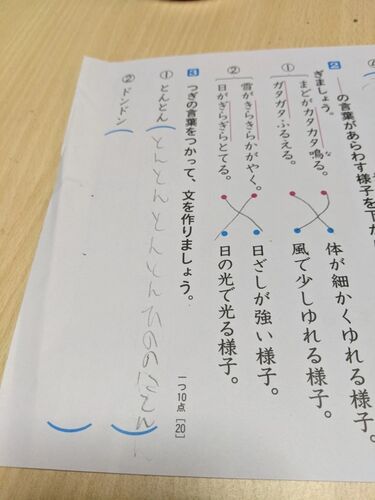 2 ――の言葉があらわす様子を下か
ぎましょう。
① まどがカタカタ鳴る。
な
ガタガタふるえる。
体が細かくゆれる様子。
風で少しゆれる様子。
② 雪がきらきらかがやく。
日がぎらぎらとてる。
日ざしが強い様子。
日の光で光る様子。
3 つぎの言葉をつかって、文を作りましょう。
一つ10点【20】
① とんとん
とんとんとんとんひのの
② ドンドン